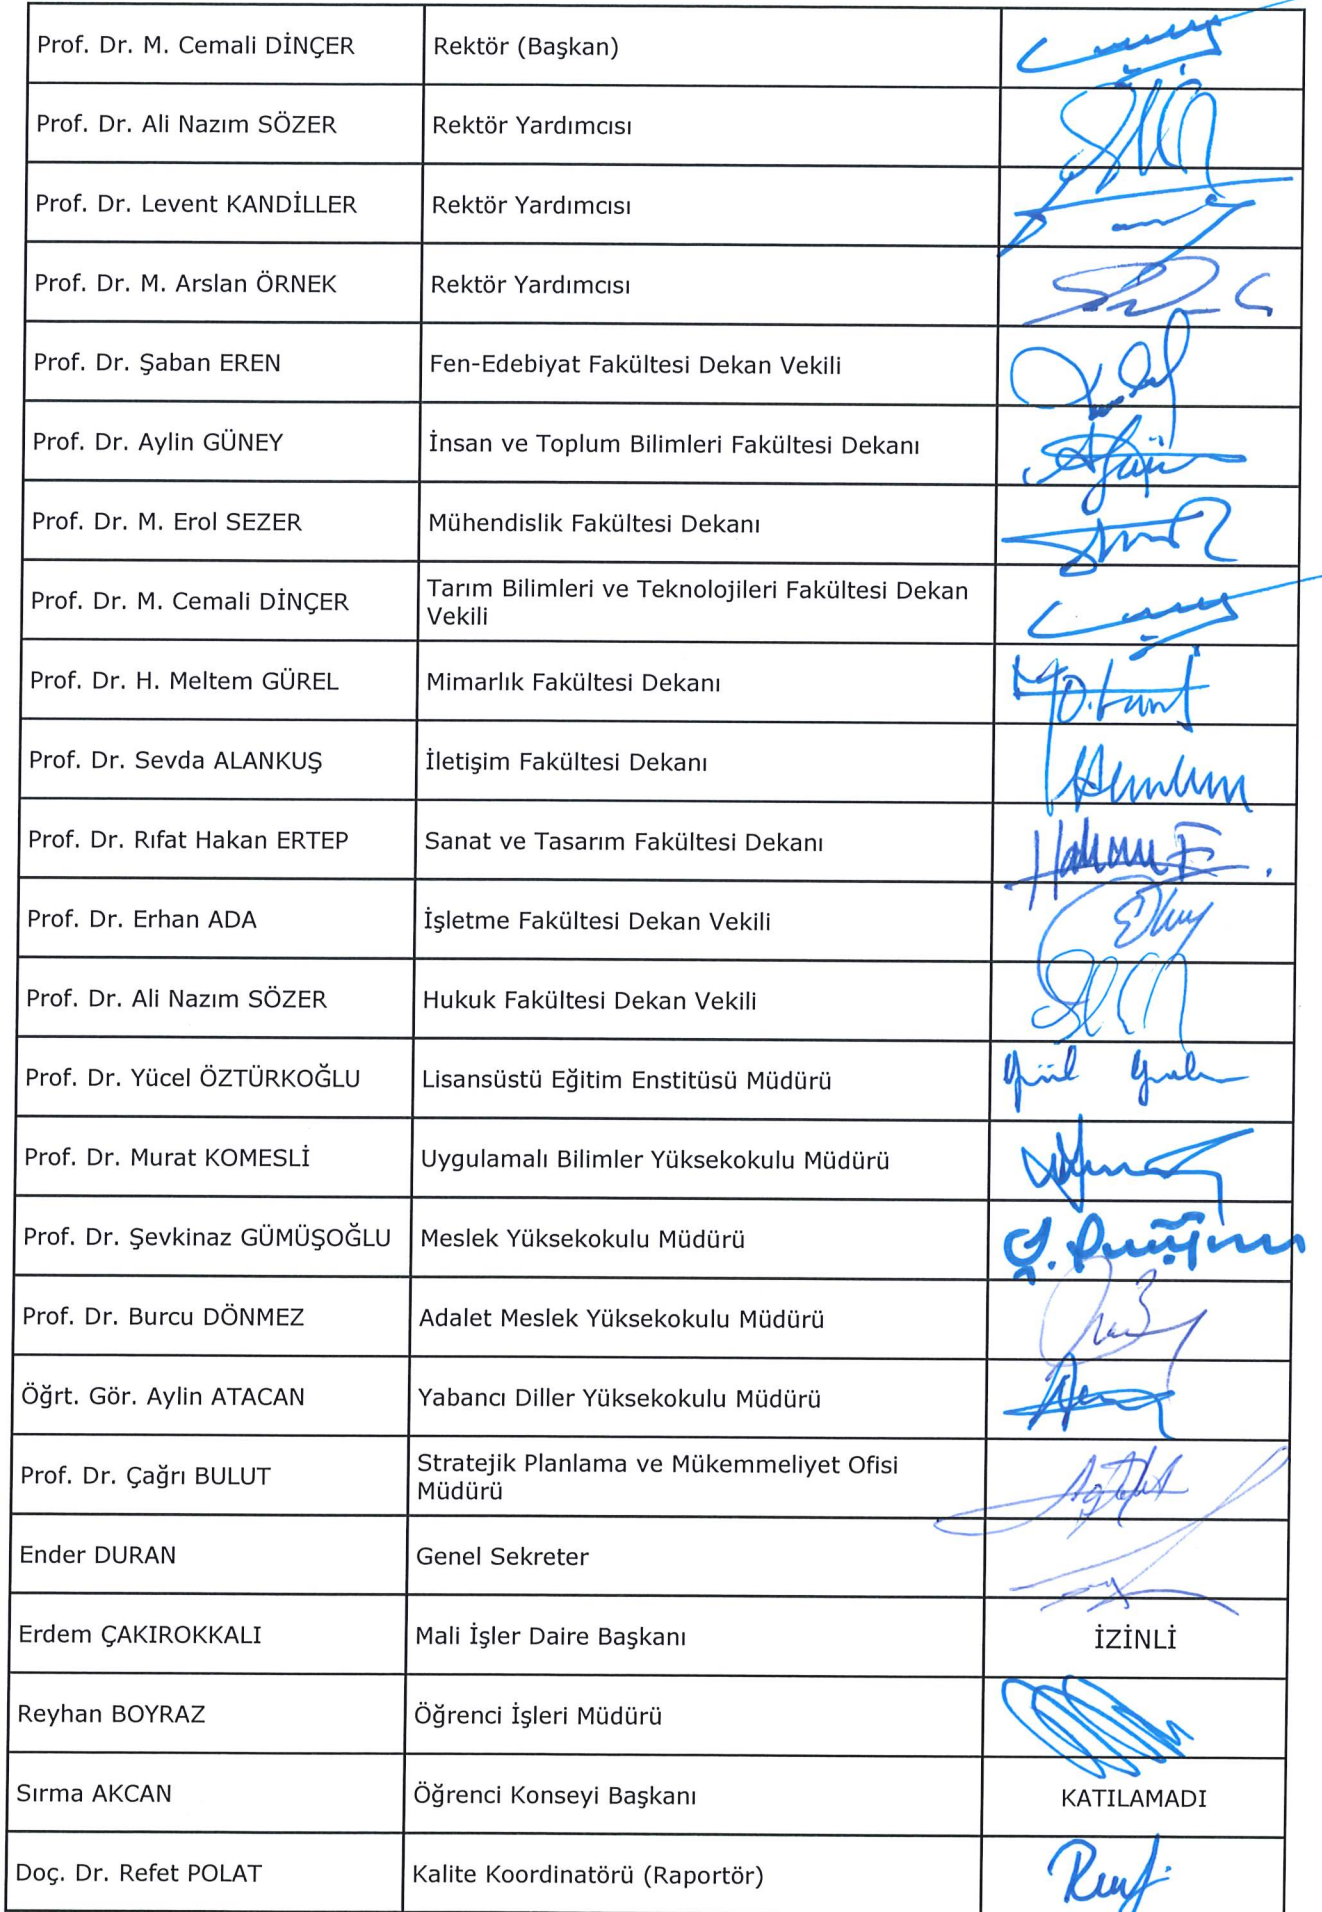 Prof. Dr. M. Cemali DİNÇER Rektör (Başkan)
Prof. Dr. Ali Nazım SÖZER Rektör Yardımcısı
Prof. Dr. Levent KANDİLLER Rektör Yardımcısı
Prof. Dr. M. Arslan ÖRNEK Rektör Yardımcısı
Prof. Dr. Şaban EREN Fen-Edebiyat Fakültesi Dekan Vekili
Prof. Dr. Aylin GÜNEY İnsan ve Toplum Bilimleri Fakültesi Dekanı
Prof. Dr. M. Erol SEZER Mühendislik Fakültesi Dekanı
Prof. Dr. M. Cemali DİNÇER Tarım Bilimleri ve Teknolojileri Fakültesi Dekan
Vekili
Prof. Dr. H. Meltem GÜREL Mimarlık Fakültesi Dekanı
Prof. Dr. Sevda ALANKUŞ İletişim Fakültesi Dekanı
Prof. Dr. Rıfat Hakan ERTEP Sanat ve Tasarım Fakültesi Dekanı
Prof. Dr. Erhan ADA İşletme Fakültesi Dekan Vekili
Prof. Dr. Ali Nazım SÖZER Hukuk Fakültesi Dekan Vekili
Prof. Dr. Yücel ÖZTÜRKOĞLU Lisansüstü Eğitim Enstitüsü Müdürü
Prof. Dr. Murat KOMESLİ Uygulamalı Bilimler Yüksekokulu Müdürü
Prof. Dr. Şevkinaz GÜMÜŞOĞLU Meslek Yüksekokulu Müdürü
Prof. Dr. Burcu DÖNMEZ Adalet Meslek Yüksekokulu Müdürü
Öğrt. Gör. Aylin ATACAN Yabancı Diller Yüksekokulu Müdürü
Prof. Dr. Çağrı BULUT Stratejik Planlama ve Mükemmeliyet Ofisi
Müdürü
Ender DURAN Genel Sekreter
Erdem ÇAKIROKKALI Mali İşler Daire Başkanı İZİNLİ
Reyhan BOYRAZ Öğrenci İşleri Müdürü
Sırma AKCAN Öğrenci Konseyi Başkanı KATILAMADI
Doç. Dr. Refet POLAT Kalite Koordinatörü (Raportör)